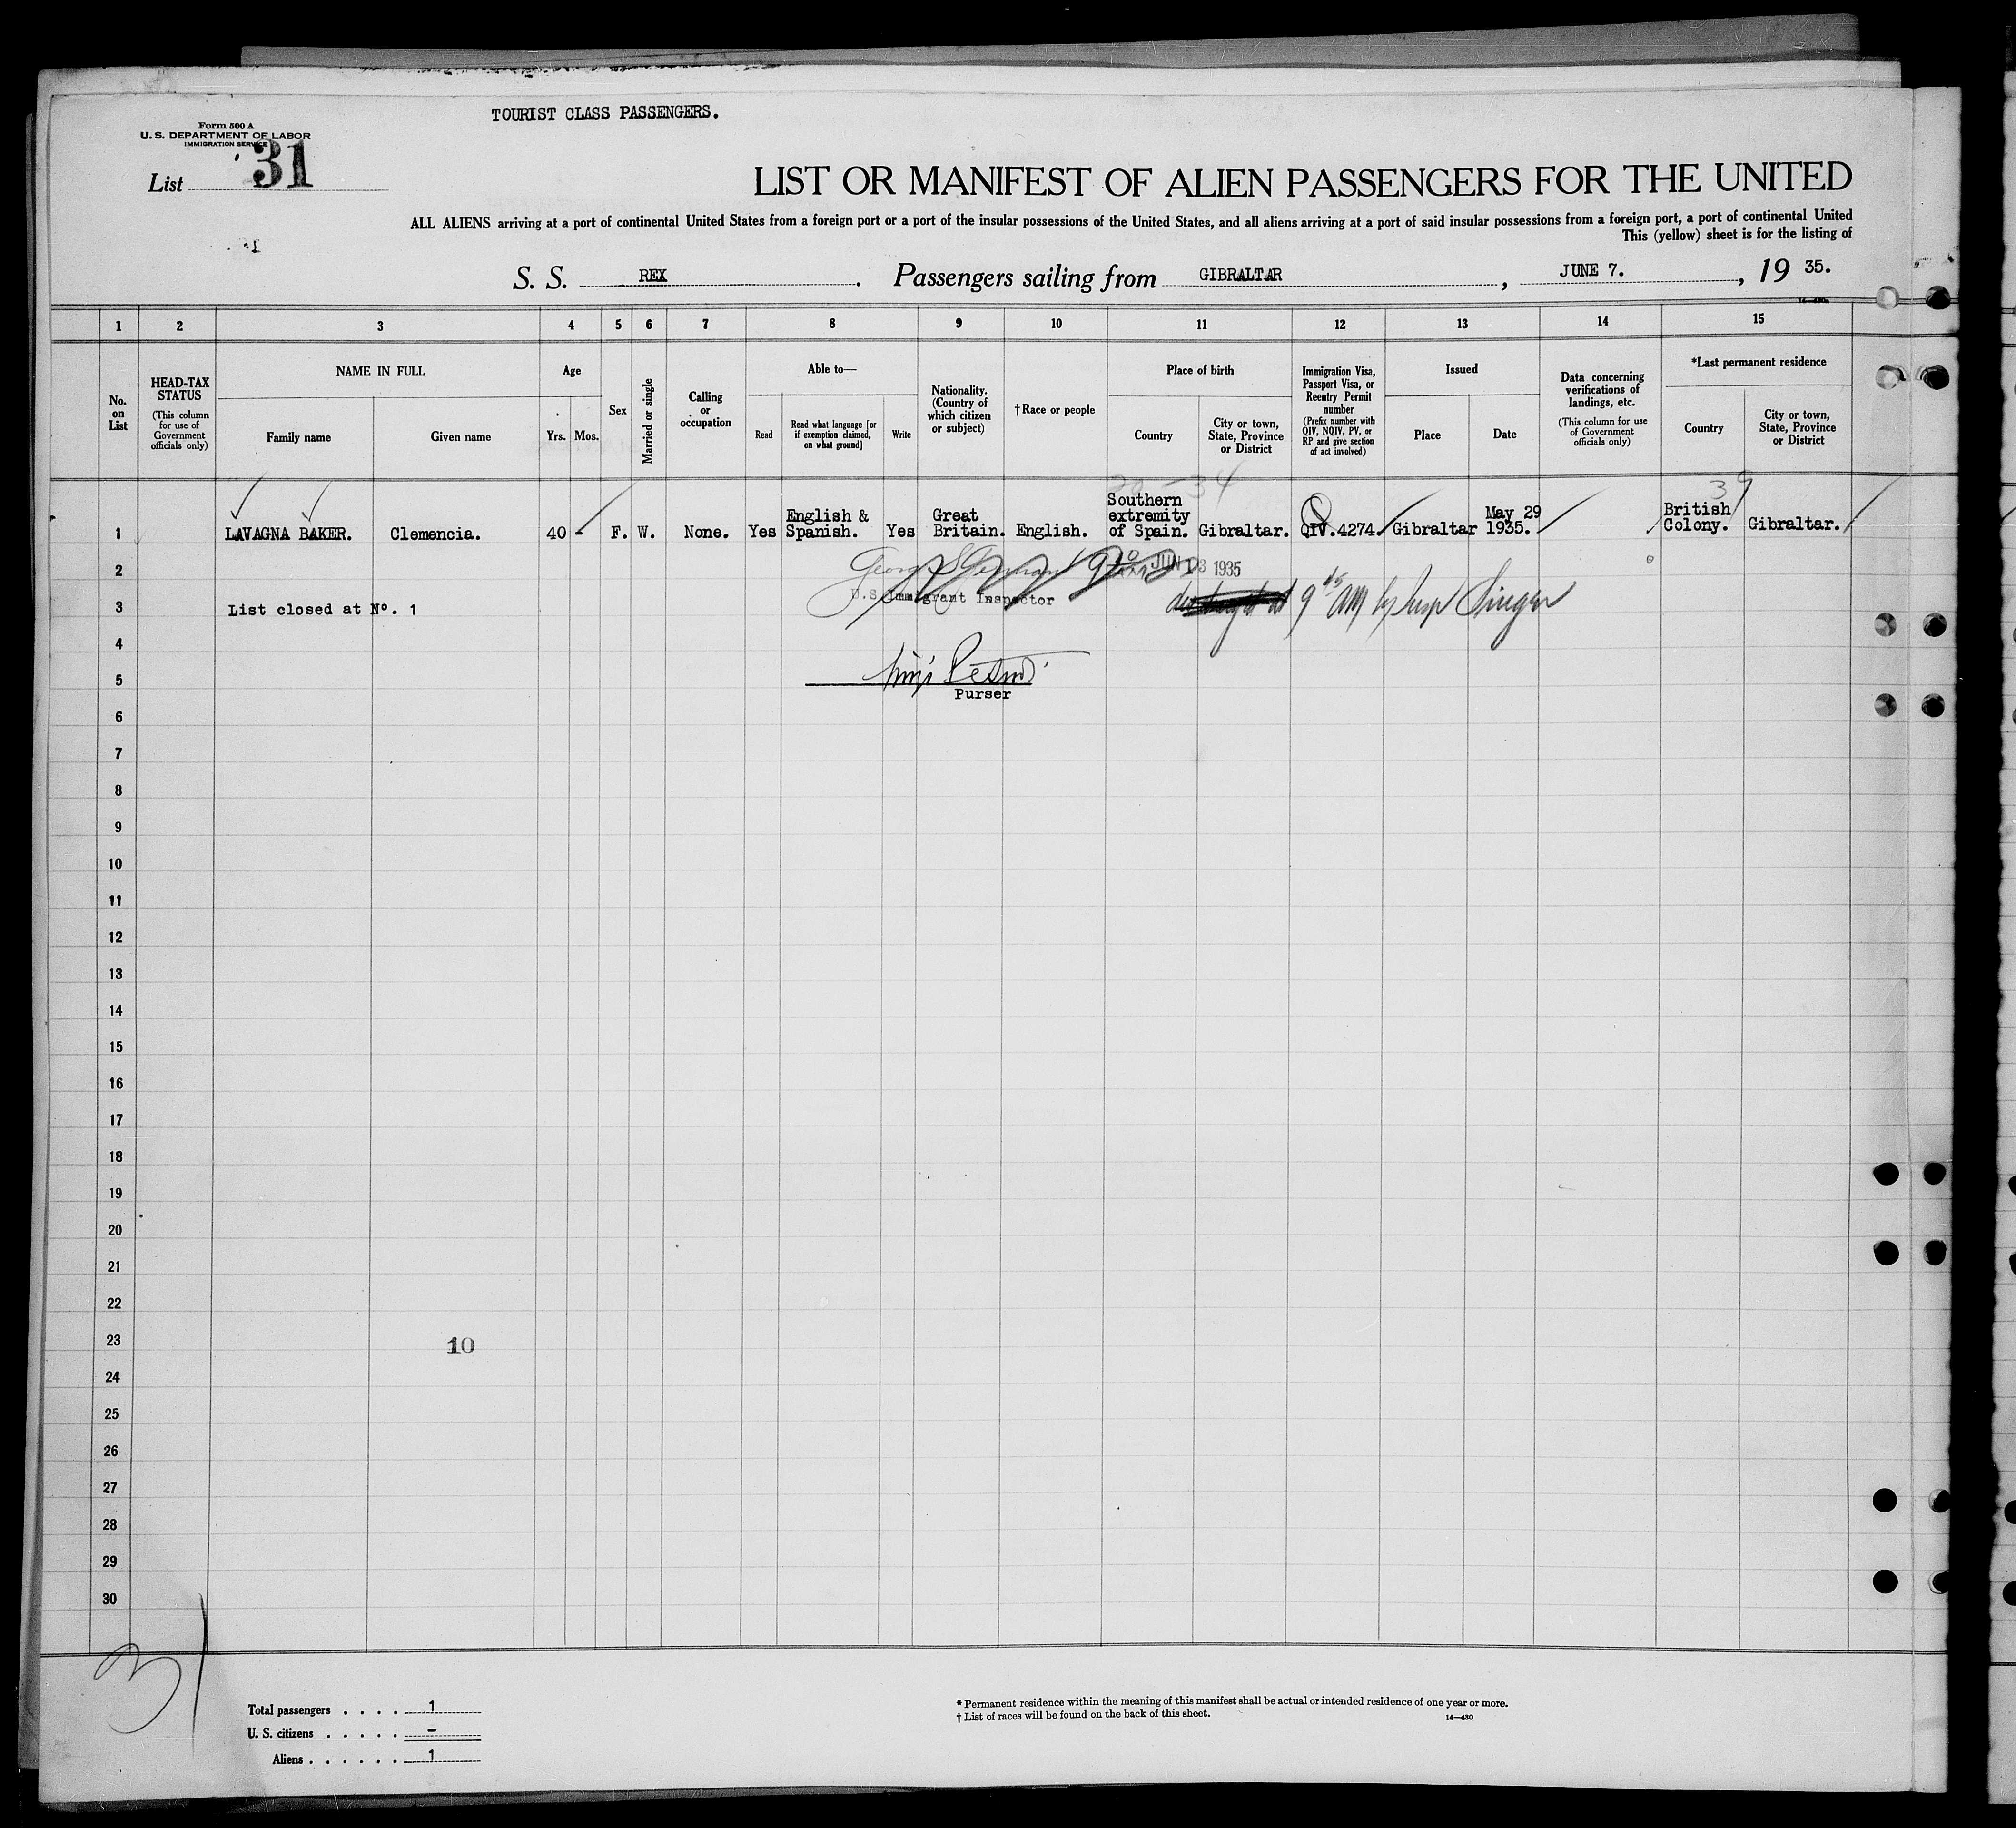 TOURIST CLASS PASSENGERS.
Form 500 A
U. S. DEPARTMENT OF LABOR
IMMIGRATION SERVICE
List 31
LIST OR MANIFEST OF ALIEN PASSENGERS FOR THE UNITED
ALL ALIENS arriving at a port of continental United States from a foreign port or a port of the insular possessions of the United States, and all aliens arriving at a port of said insular possessions from a foreign port, a port of continental United
This (yellow) sheet is for the listing of
S. S. REX. Passengers sailing from GIBRALTAR, JUNE 7., 19 35.
1 2 3 4 5 6 7 8 9 10 11 12 13 14 15
No. on List
HEAD-TAX STATUS
(This column for use of Government officials only)
NAME IN FULL
Family name
Given name
Age
Yrs. Mos.
Sex
Married or single
Calling or occupation
Able to—
Read
Read what language [or if exemption claimed, on what ground]
Write
Nationality. (Country of which citizen or subject)
† Race or people
Place of birth
Country
City or town, State, Province or District
Immigration Visa, Passport Visa, or Reentry Permit number
(Prefix number with QIV, NQIV, PV, or RP and give section of act involved)
Issued
Place
Date
Data concerning verifications of landings, etc.
(This column for use of Government officials only)
*Last permanent residence
Country
City or town, State, Province or District
39
1 LAVAGNA BAKER. Clemencia. 40 - F. W. None. Yes English & Spanish. Yes Great Britain. English. Southern extremity of Spain. Gibraltar. QIV.4274. Gibraltar May 29 1935. British Colony. Gibraltar.
2
JUN 13 1935
U.S. Immigrant Inspector
9 45 AM by Insp Singer
3 List closed at Nº. 1
4
5
Purser
6
7
8
9
10
11
12
13
14
15
16
17
18
19
20
21
22
23
10
24
25
26
27
28
29
30
31
Total passengers . . . . 1
U. S. citizens . . . . . -
Aliens . . . . . . 1
* Permanent residence within the meaning of this manifest shall be actual or intended residence of one year or more.
† List of races will be found on the back of this sheet.
14—430